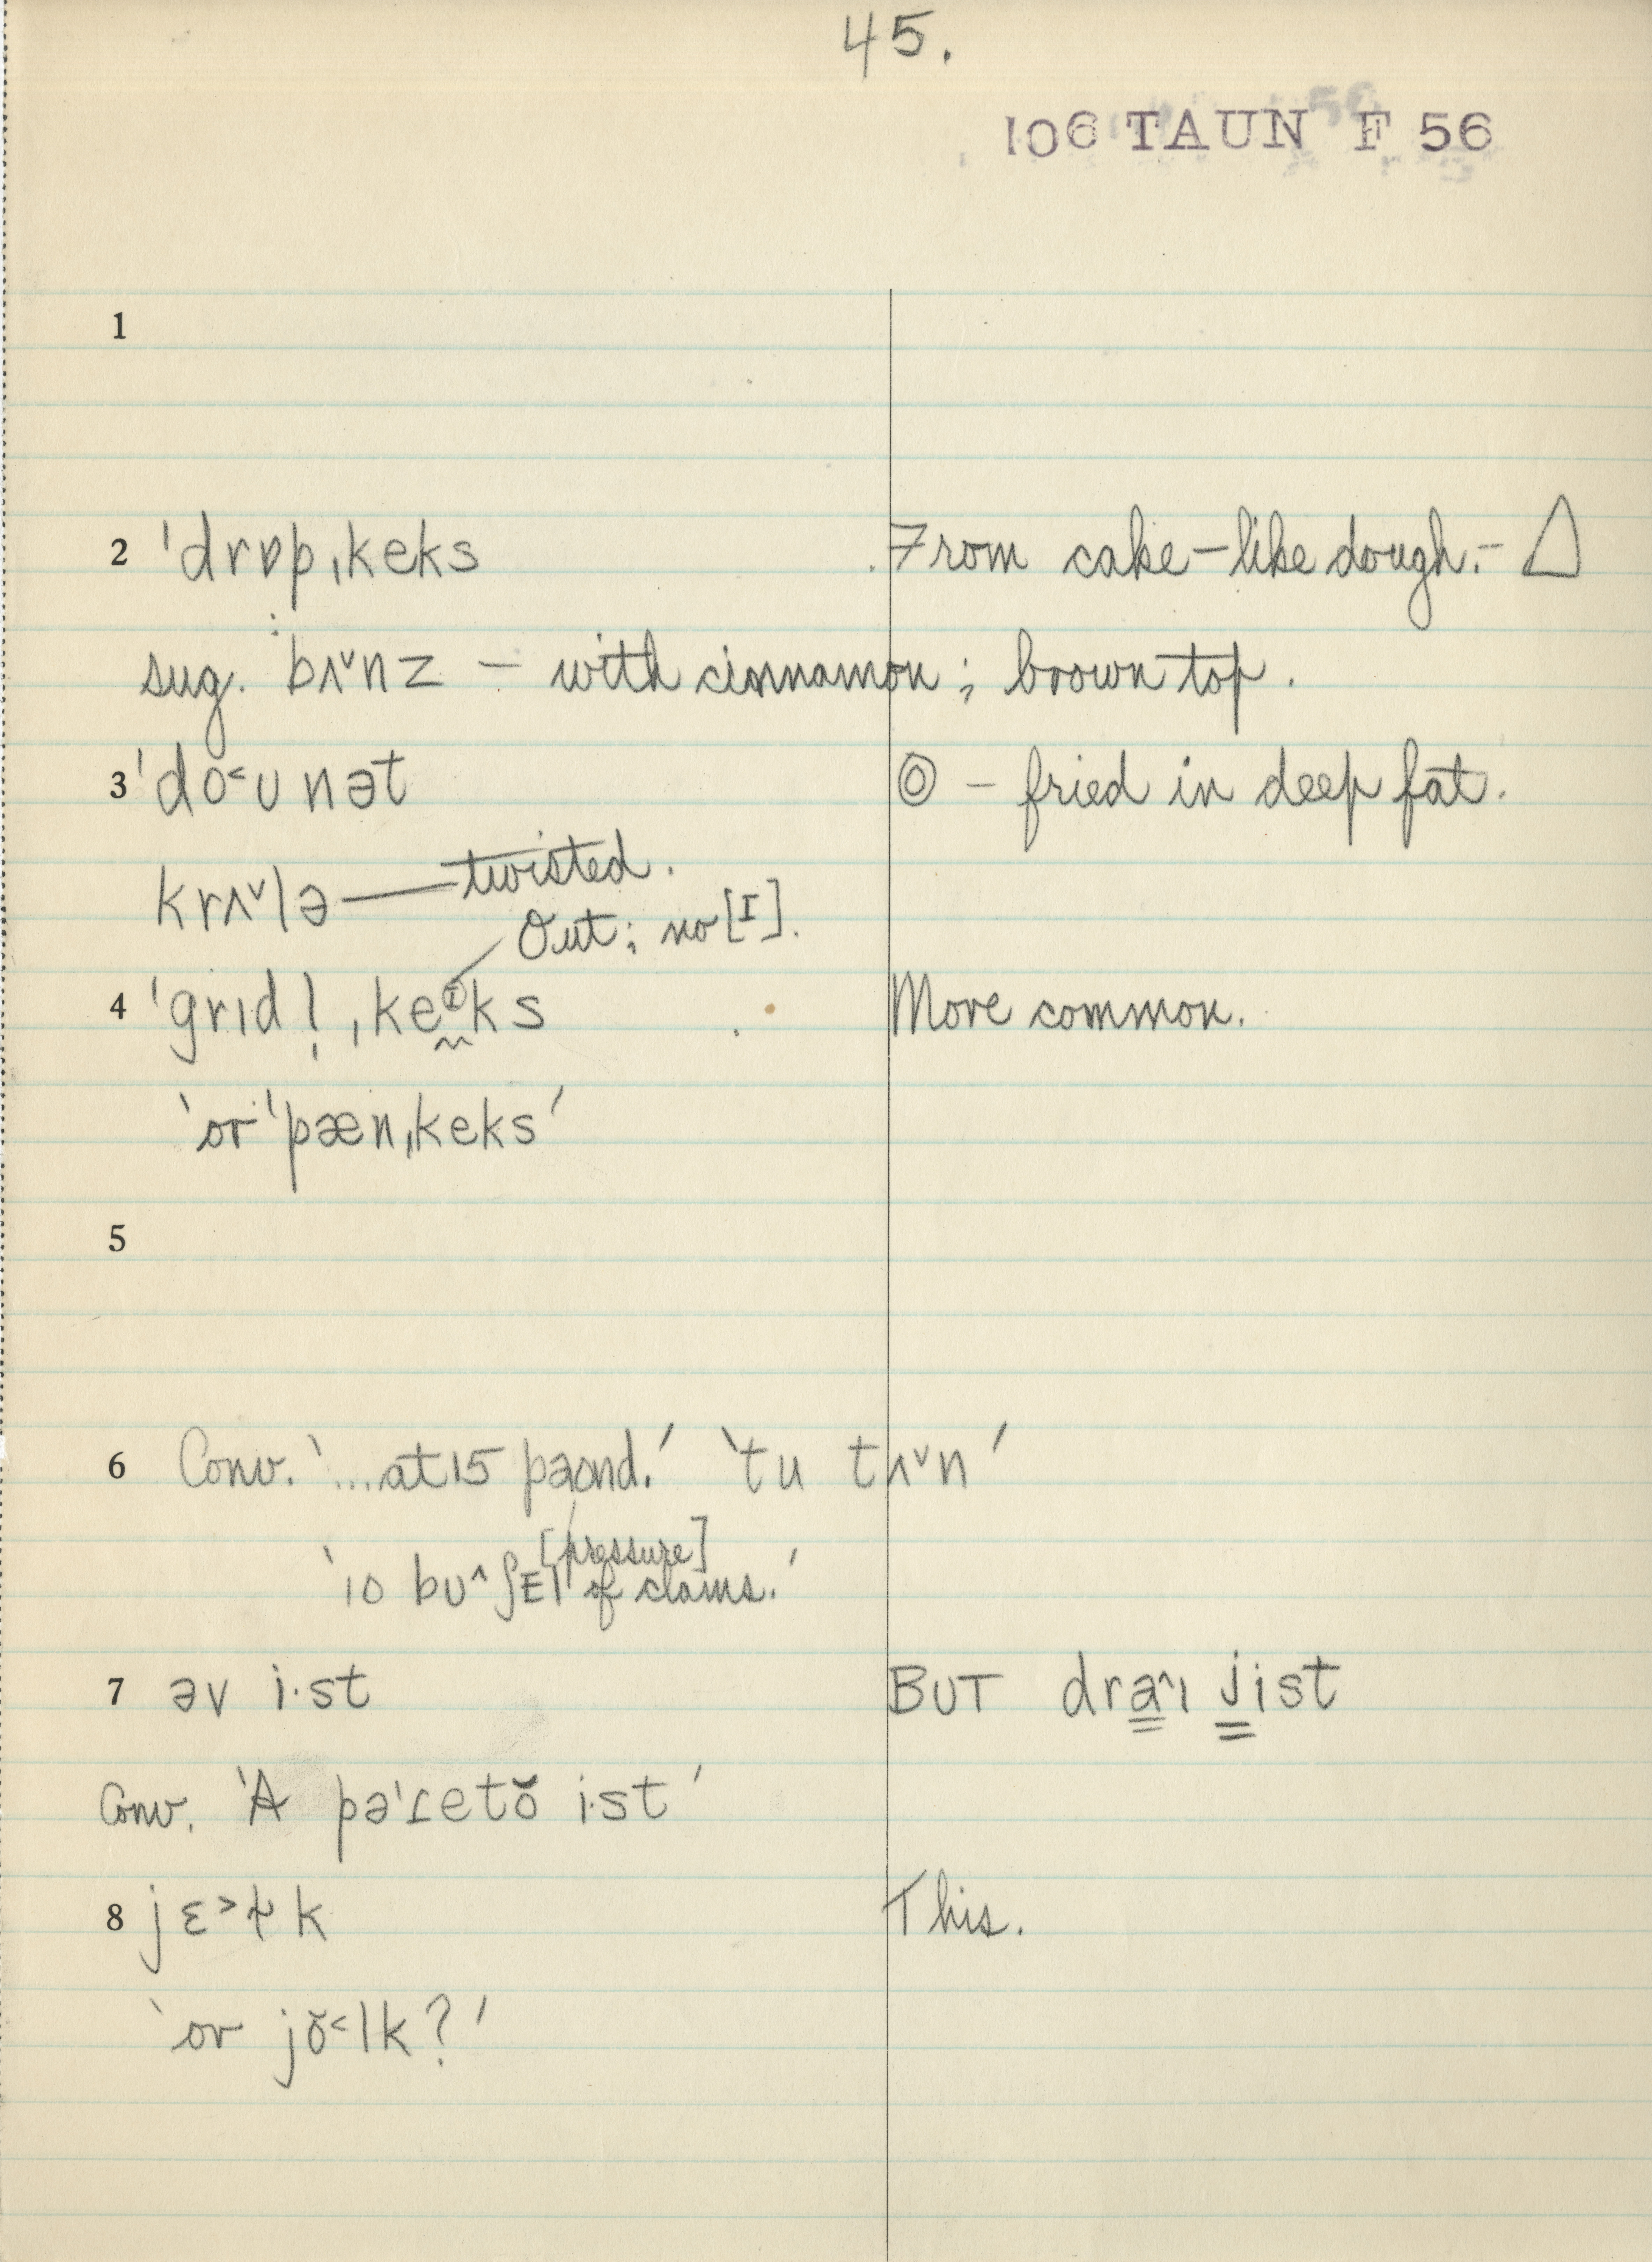 45.
106 TAUN F 56
1
2 ˈdrɒpˌkeks From cake-like dough.- △
sug. bʌ˅nz - with cinnamon; brown top.
3 ˈdo˂ʊnət ◎ - fried in deep fat.
krʌ˅lə — twisted.
Out; no [I].
4 ˈgrɪdl̩ˌkeᶦks More common.
'or ˈpænˌkeks'
5
6 Conv. '...at 15 paʊnd.' 'tu tʌ˅n'
[pressure]
'10 bʊ^ʃEl of clams.'
7 əv i·st BUT dra^ɪ jist
Conv. 'A pəˈɾetŏ i·st'
8 jɛ˃ɫk This.
'or jŏ˂lk?'